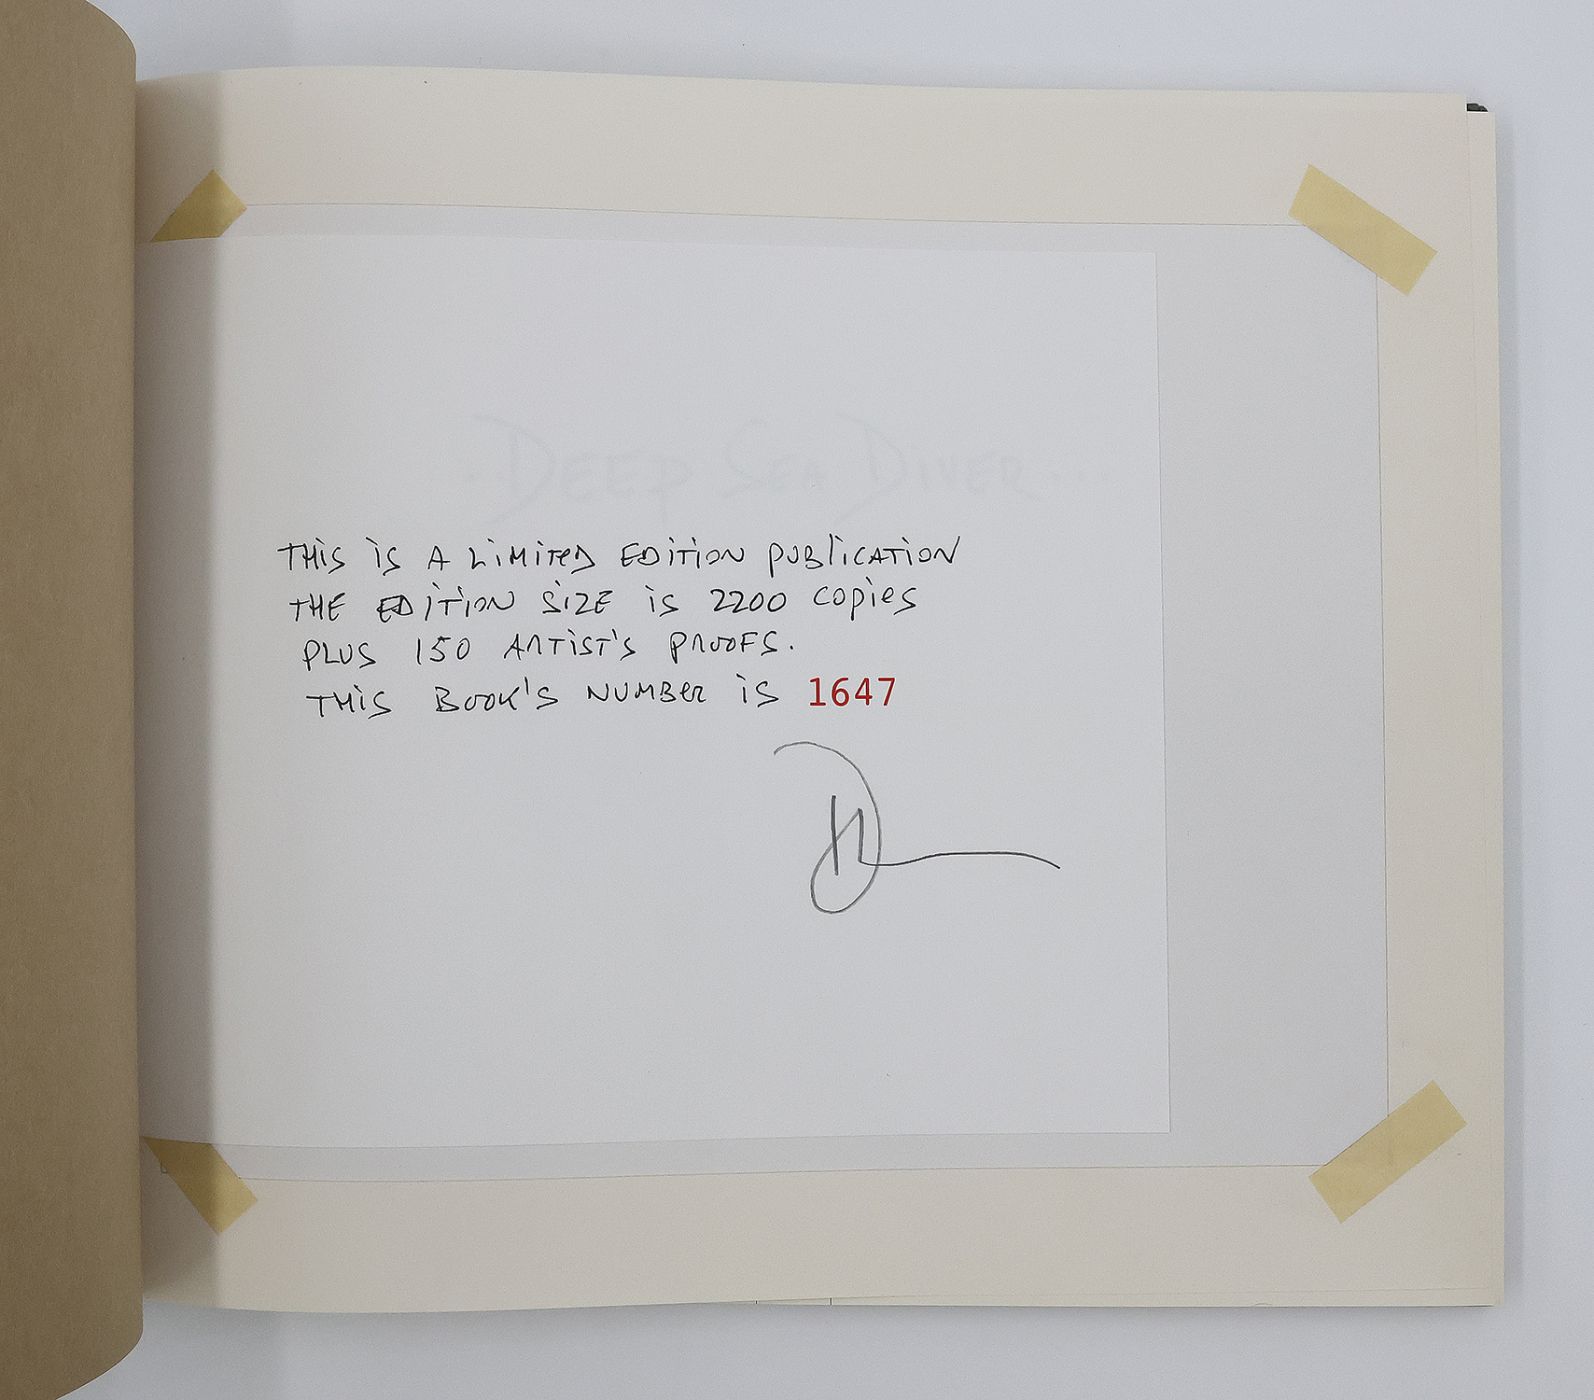 Deep Sea Diver...
THIS IS A LIMITED EDITION PUBLICATION
THE EDITION SIZE IS 2200 COPIES
PLUS 150 ARTIST'S PROOFS.
THIS BOOK'S NUMBER IS 1647